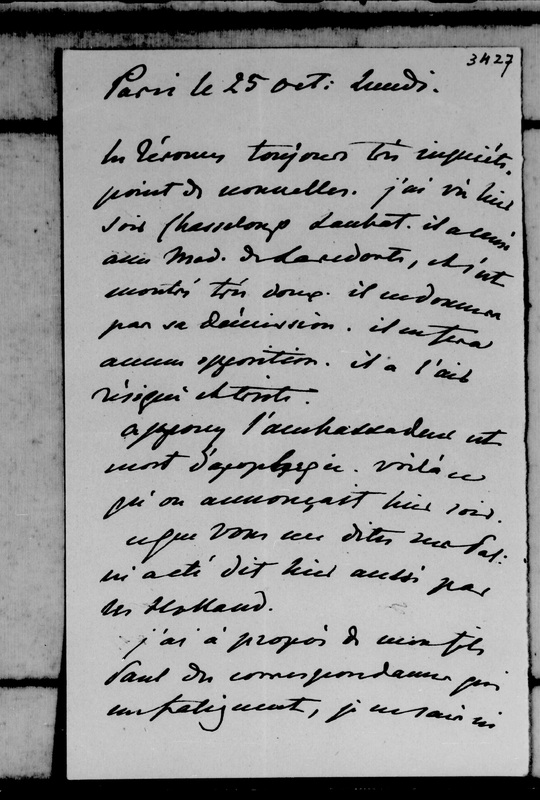 3427
Paris le 25 oct: Lundi.
toujours très inquiets.
point de nouvelles. j'ai vu hier
soir Chasseloup Laubat. il a causé
avec Mad. de Laredorte, et s'est
montré très doux. il ne donnera
pas sa démission. il ne fera
aucune opposition. il a l'air
résigné et triste.
appony l'ambassadeur est
mort d'apoplexie. voilà ce
qu'on annonçait hier soir.
ce que vous me dites sur Pal:
m'a été dit hier aussi par
les Holland.
j'ai à propos de mon fils
Paul des correspondances qui
me fatiguent, je ne sais ni